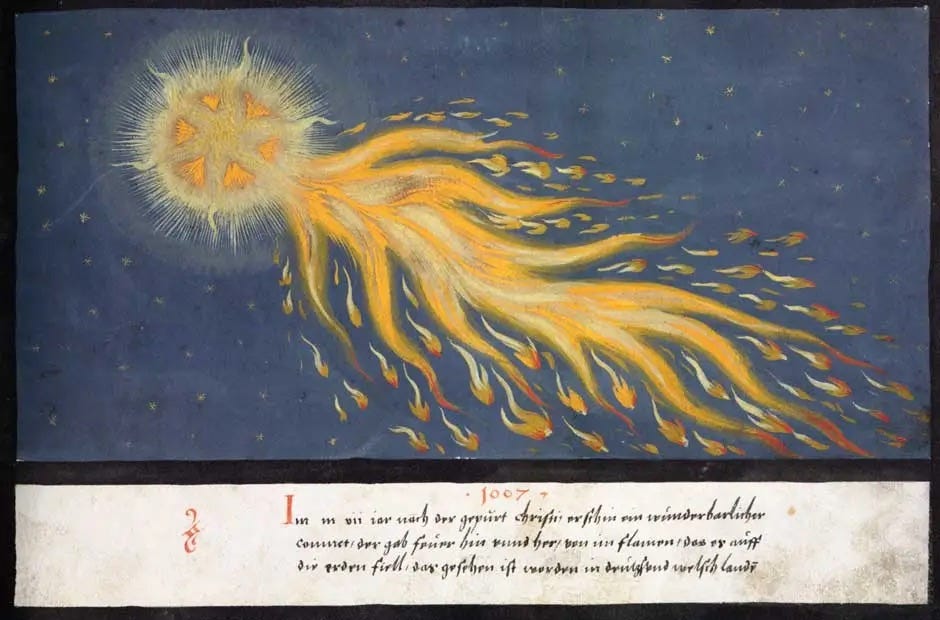 1007
Im m vii iar nach der gepürt christi erschin ein wünderbarlicher
commet, der gab feüer hin vnnd her, von im flamen, das es auff
die erden fiell, das gesehen ist worden in deutschend welsch lande